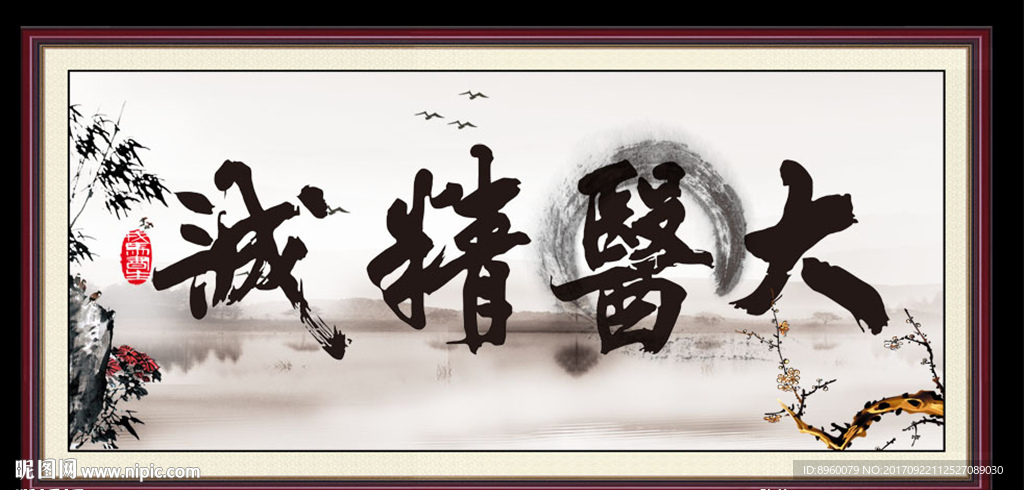 大醫精誠
昵图网 www.nipic.com
ID:8960079 NO:20170922112527089030